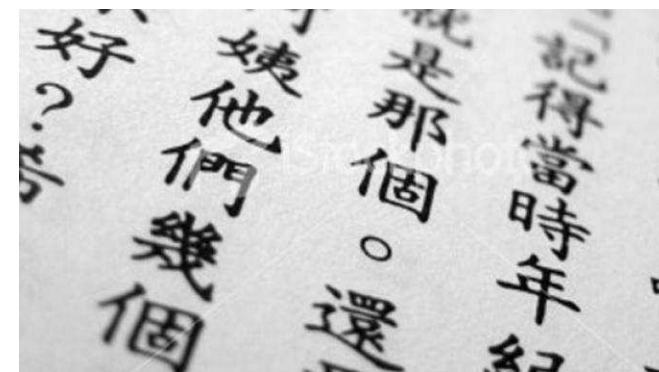 「記得當時年紀
就是那個。還
姨他們幾個
好？
iStockphoto